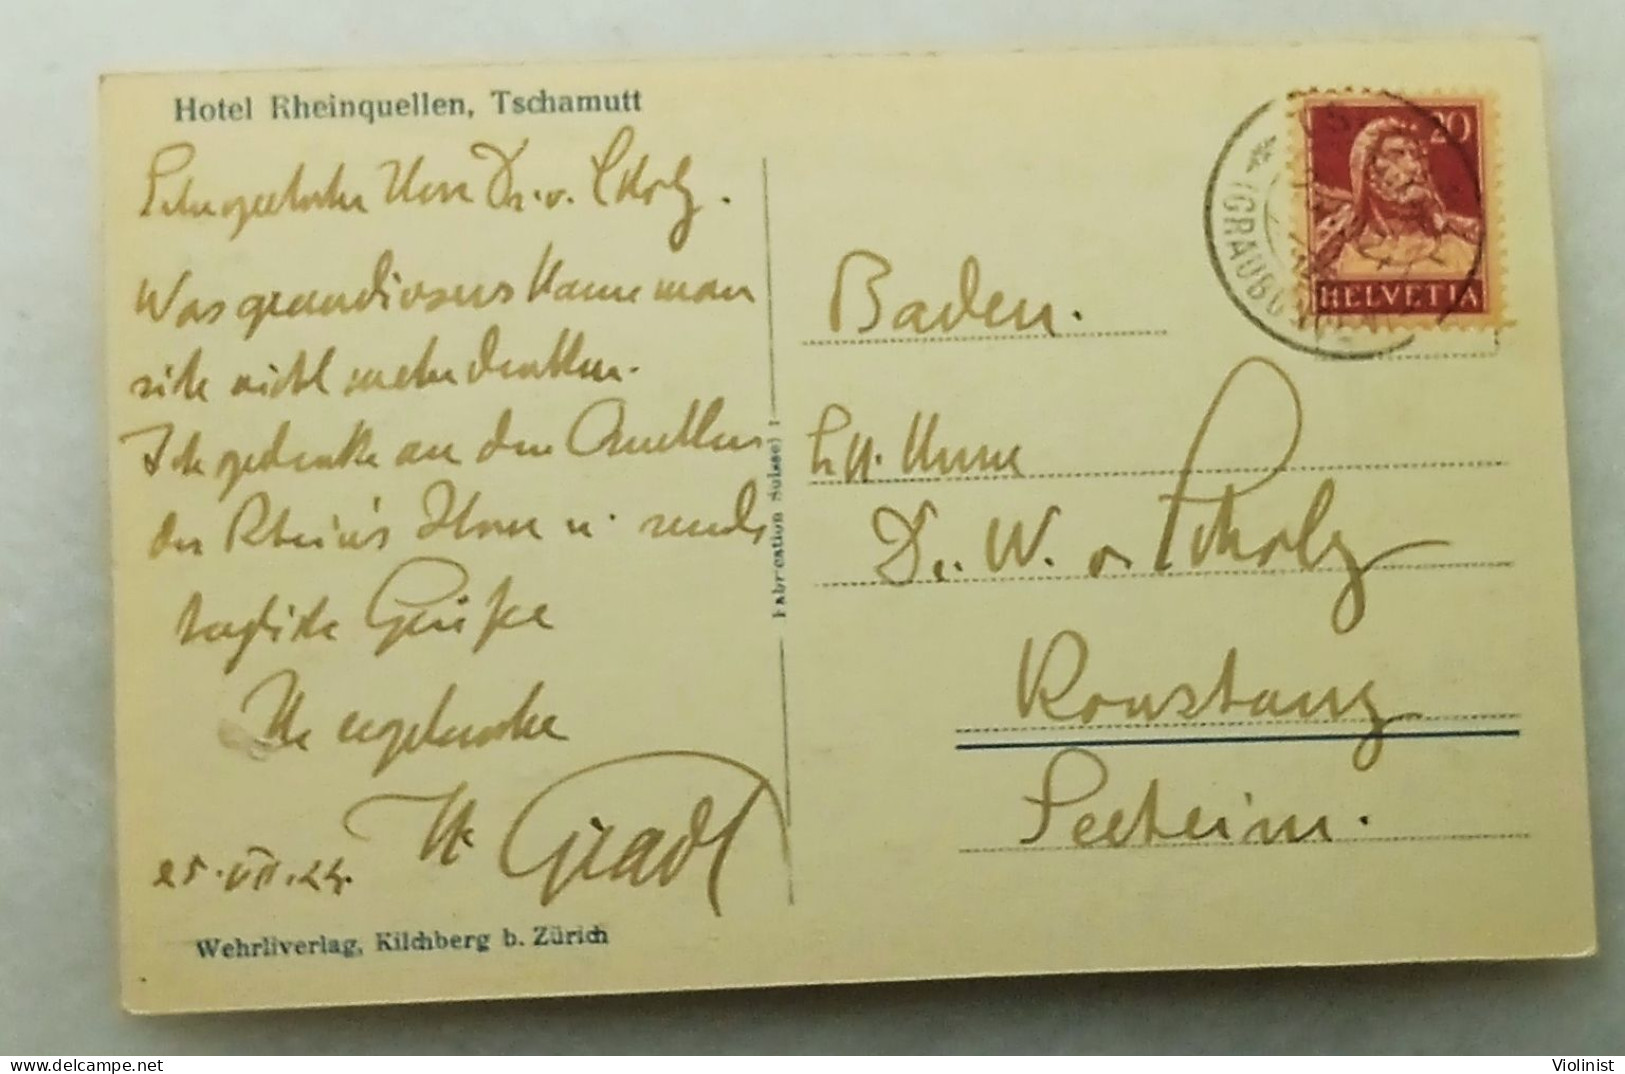 Hotel Rheinquellen, Tschamutt
Sehr geehrter Herr Dr. v. Scholz.
Was grandioseres kann man
sich nicht mehr denken.
Ich gedenke an den Quellen
des Rheines Ihrer u. sende
herzliche Grüße
Ihr ergebenster
Gradl
25.VII.24.
Wehrliverlag, Kilchberg b. Zürich
Fabrication Suisse
20
HELVETIA
(GRAUBÜNDEN)
Baden.
Herrn
Dr. W. v. Scholz
Konstanz
Seeheim.
Violinist